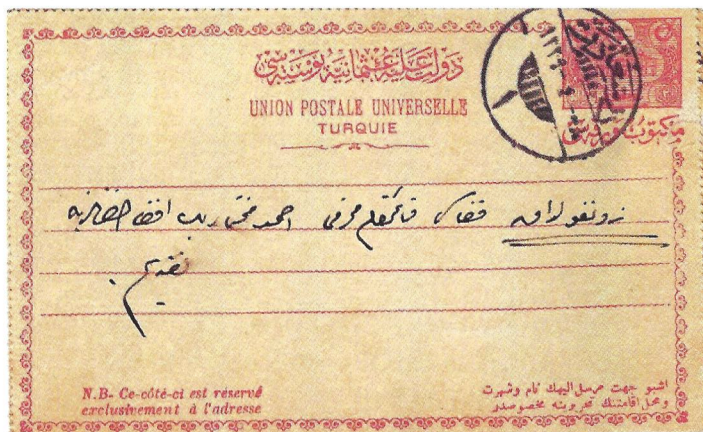 دولت علیه عثمانیه پوسته سی
UNION POSTALE UNIVERSELLE
TURQUIE
مكتوب ورقه سی
زونغولداق قضاسی قائمقام احمد افندی
تقدیم
N.B. Ce-côté-ci est réservé
exclusivement à l'adresse
اشبو جهت مرسل الیهك نام و شهرت
و محل اقامتنك تحریرینه مخصوصدر